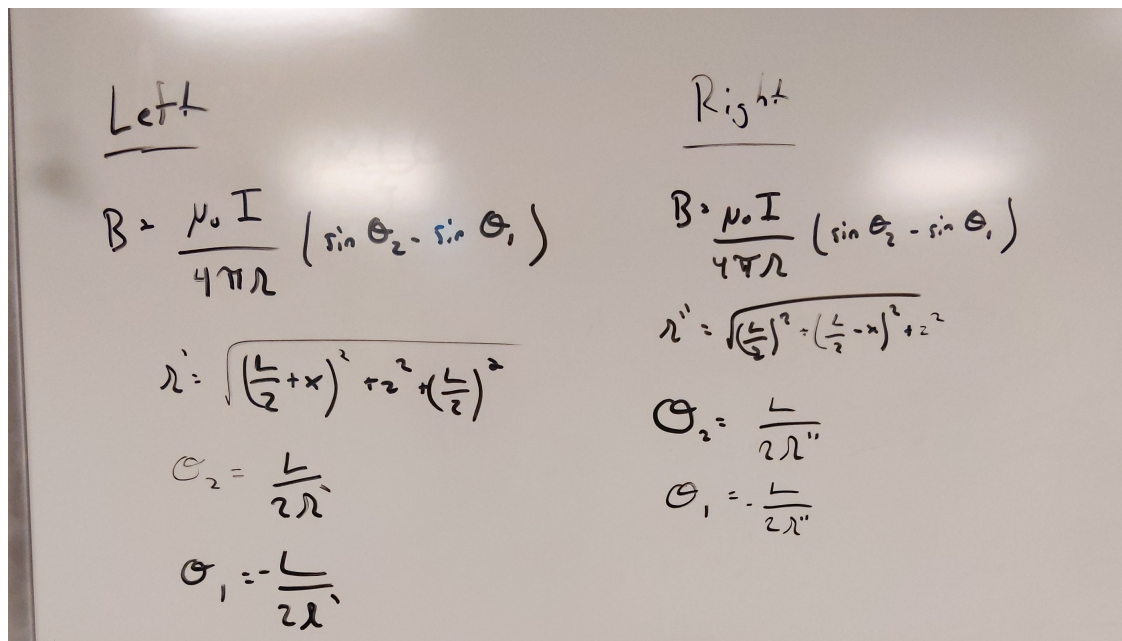 Left
B = μ₀I / 4πr (sin θ₂ - sin θ₁)
r' = √((L/2 + x)² + z² + (L/2)²)
θ₂ = L / 2r'
θ₁ = -L / 2r'
Right
B = μ₀I / 4πr (sin θ₂ - sin θ₁)
r'' = √((L/2)² + (L/2 - x)² + z²)
θ₂ = L / 2r''
θ₁ = -L / 2r''